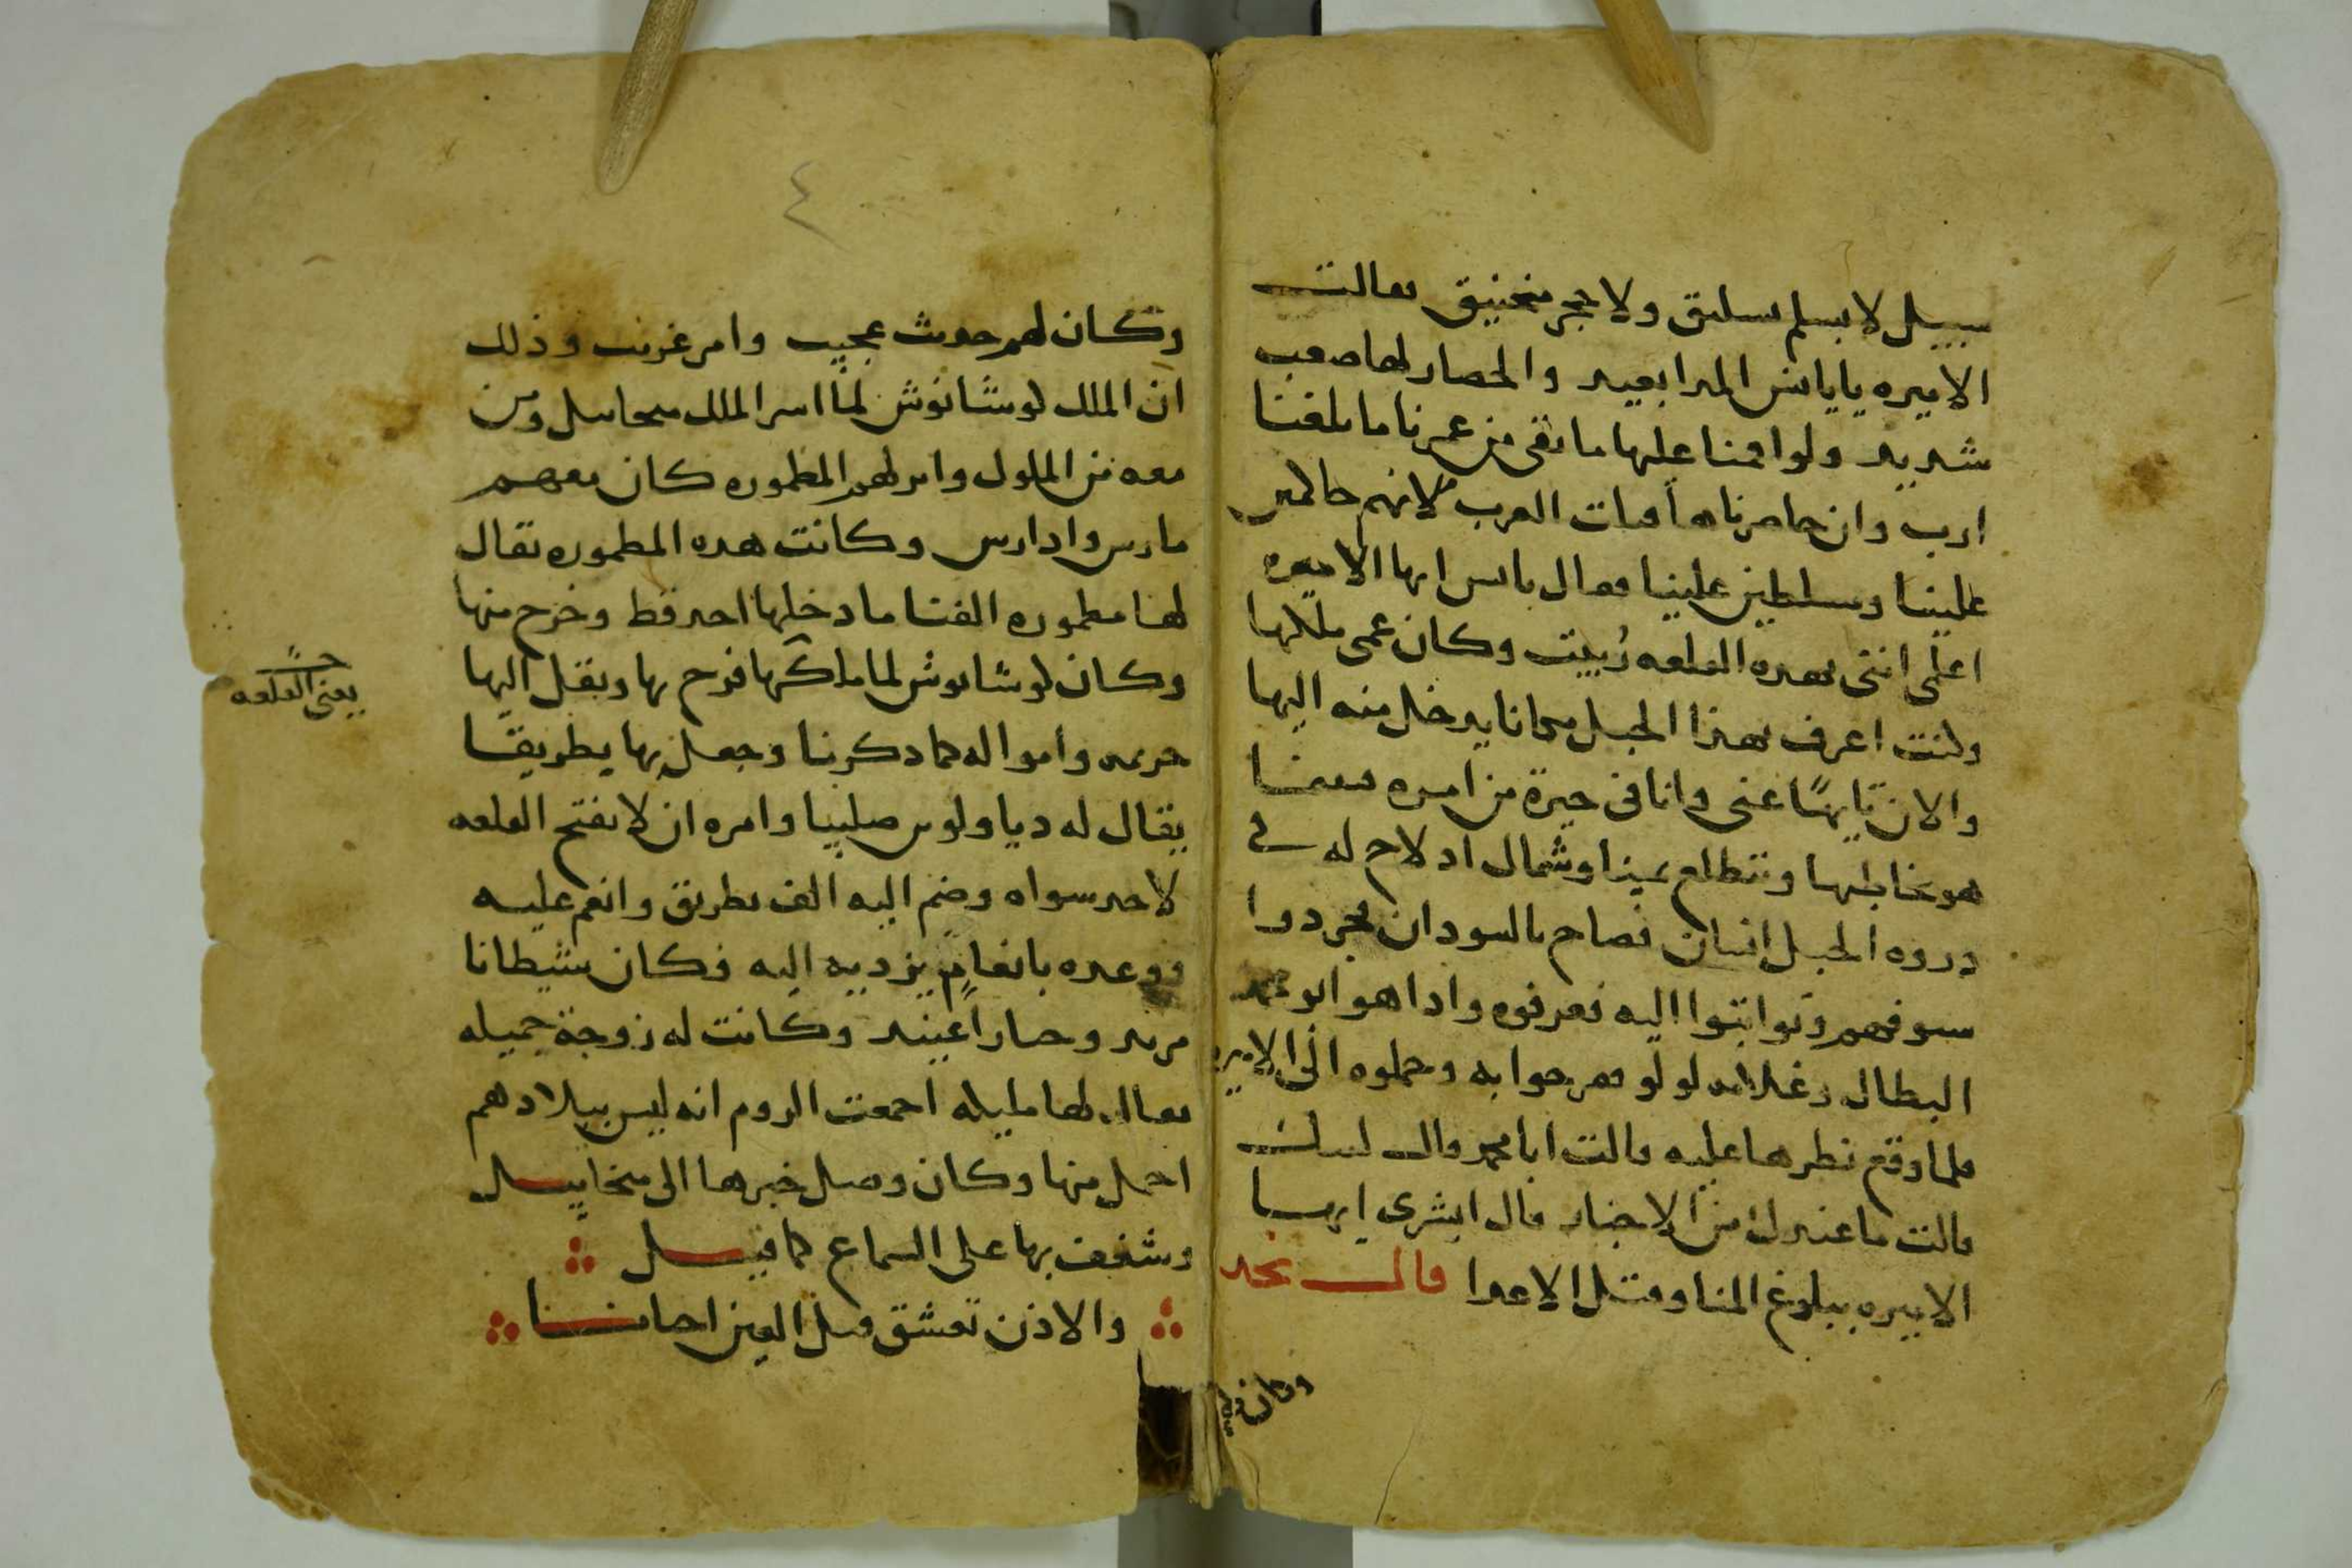 سبيل لا بسلم يسلتق ولا حجر منجنيق فقالت
الاميره ياياىس المدا بعيد والحصار لها صعب
شديد ولو اقمنا عليها ما بقى من عمرنا ما بلغنا
ارب وان حاصرناها افات العرب لانهم
علينا ومسلطين علينا فقال ياىس ايها الاميره
اعلمى اننى بهده القلعه رُبيت وكان عمى ملكها
وكنت اعرف بهذا الجبل مكانا يدخل منه اليها
والان تايهًا عنى وانا فى حيرة من امره فبينما
هو يخاطبها ويتطلع يمينا وشمال اد لاح له فى
دروه الجبل انسان فصاح بالسودان فجردوا
سيوفهم وتواتبوا اليه فعرفوه وادا هو ابو محمد
البطال وغلامه لولو ففرحوا به وحملوه الى الاميره
فلما وقع نظرها عليه قالت ابا محمد قال لبيك
قالت ما عندك من الاخبار قال ابشرى ايها
الاميره ببلوغ المنا وقتل الاعدا قال نجد
وكان لهم
وكان لهم حديث عجيب وامر غريب وذلك
ان الملك لوشانوش لما اسر الملك ميخاييل ومن
معه من الملوك وامر لهم المطموره كان معهم
مارس وادارس وكانت هده المطموره يقال
لها مطموره الفنا ما دخلها احد قط وخرج منها
وكان لوشانوش لما ملكها فرح بها ونقل اليها
حريمه وامواله كما دكرنا وجعل بها بطريقا
يقال له دياولوس صليبا وامره ان لا يفتح القلعه
لاحد سواه وضم اليه الف بطريق وانعم عليه
ووعده بانعام يزديه اليه فكان شيطانا
مريد وجبارا عنيد وكانت له زوجة جميله
يقال لها مليله اجمعت الروم انه ليس ببلادهم
اجمل منها وكان وصل خبرها الى ميخاييل
وشغف بها على السماع كما قيل
والاذن تعشق قبل العين احيانا
يعنى القلعه
٤